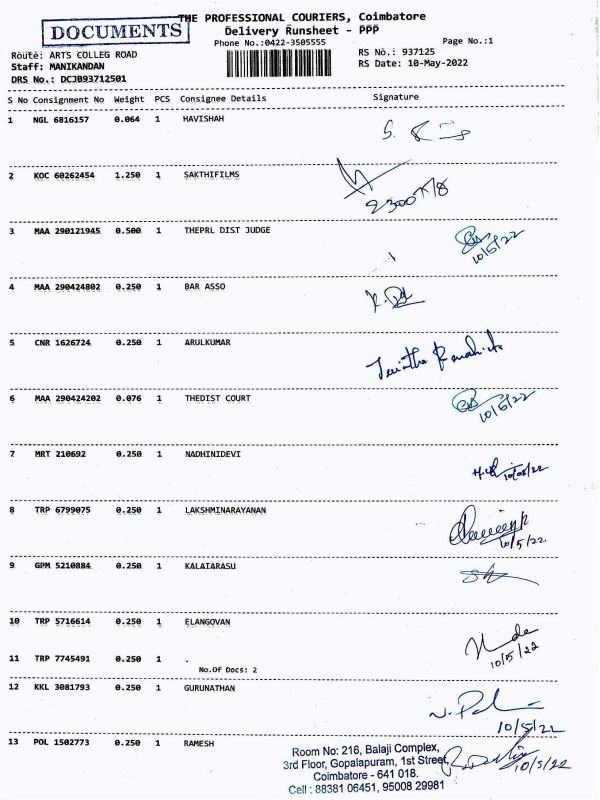 DOCUMENTS
THE PROFESSIONAL COURIERS, Coimbatore
Delivery Runsheet - PPP
Phone No.:0422-3505555
Page No.:1
Route: ARTS COLLEG ROAD
RS No.: 937125
Staff: MANIKANDAN
RS Date: 10-May-2022
DRS No.: DCJB93712501
S No Consignment No Weight PCS Consignee Details Signature
1 NGL 6816157 0.064 1 HAVISHAH
2 KOC 60262454 1.250 1 SAKTHIFILMS
3 MAA 290121945 0.500 1 THEPRL DIST JUDGE
10/5/22
4 MAA 290424802 0.250 1 BAR ASSO
5 CNR 1626724 0.250 1 ARULKUMAR
6 MAA 290424202 0.076 1 THEDIST COURT
10/5/22
7 MRT 210692 0.250 1 NADHINIDEVI
10/05/22
8 TRP 6799075 0.250 1 LAKSHMINARAYANAN
10/5/22
9 GPM 5210884 0.250 1 KALAIARASU
10 TRP 5716614 0.250 1 ELANGOVAN
10/5/22
11 TRP 7745491 0.250 1 .
No.Of Docs: 2
12 KKL 3081793 0.250 1 GURUNATHAN
10/5/22
13 POL 1502773 0.250 1 RAMESH
10/5/22
Room No: 216, Balaji Complex,
3rd Floor, Gopalapuram, 1st Street,
Coimbatore - 641 018.
Cell : 88381 06451, 95008 29981